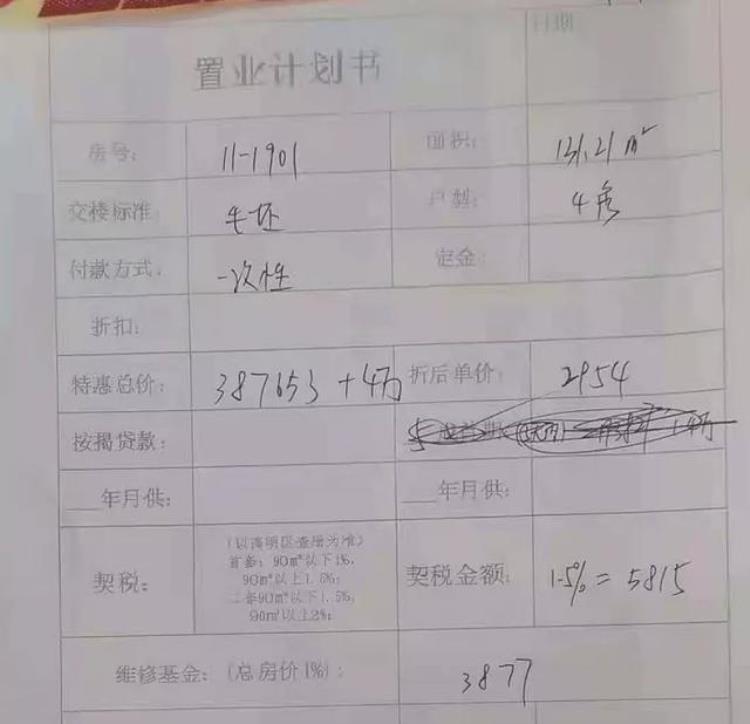 日期
置业计划书
房号: 11-1901 面积: 131.21 m²
交楼标准: 毛坯 户型: 4房
付款方式: 一次性 定金:
折扣:
特惠总价: 387653 +4万 折后单价: 2954
按揭贷款:
___年月供: ___年月供:
契税:
(以高明区查册为准)
首套: 90㎡以下1%,
90㎡以上1.5%;
二套90㎡以下1.5%,
90㎡以上2%;
契税金额: 1.5% = 5815
维修基金: (总房价1%): 3877